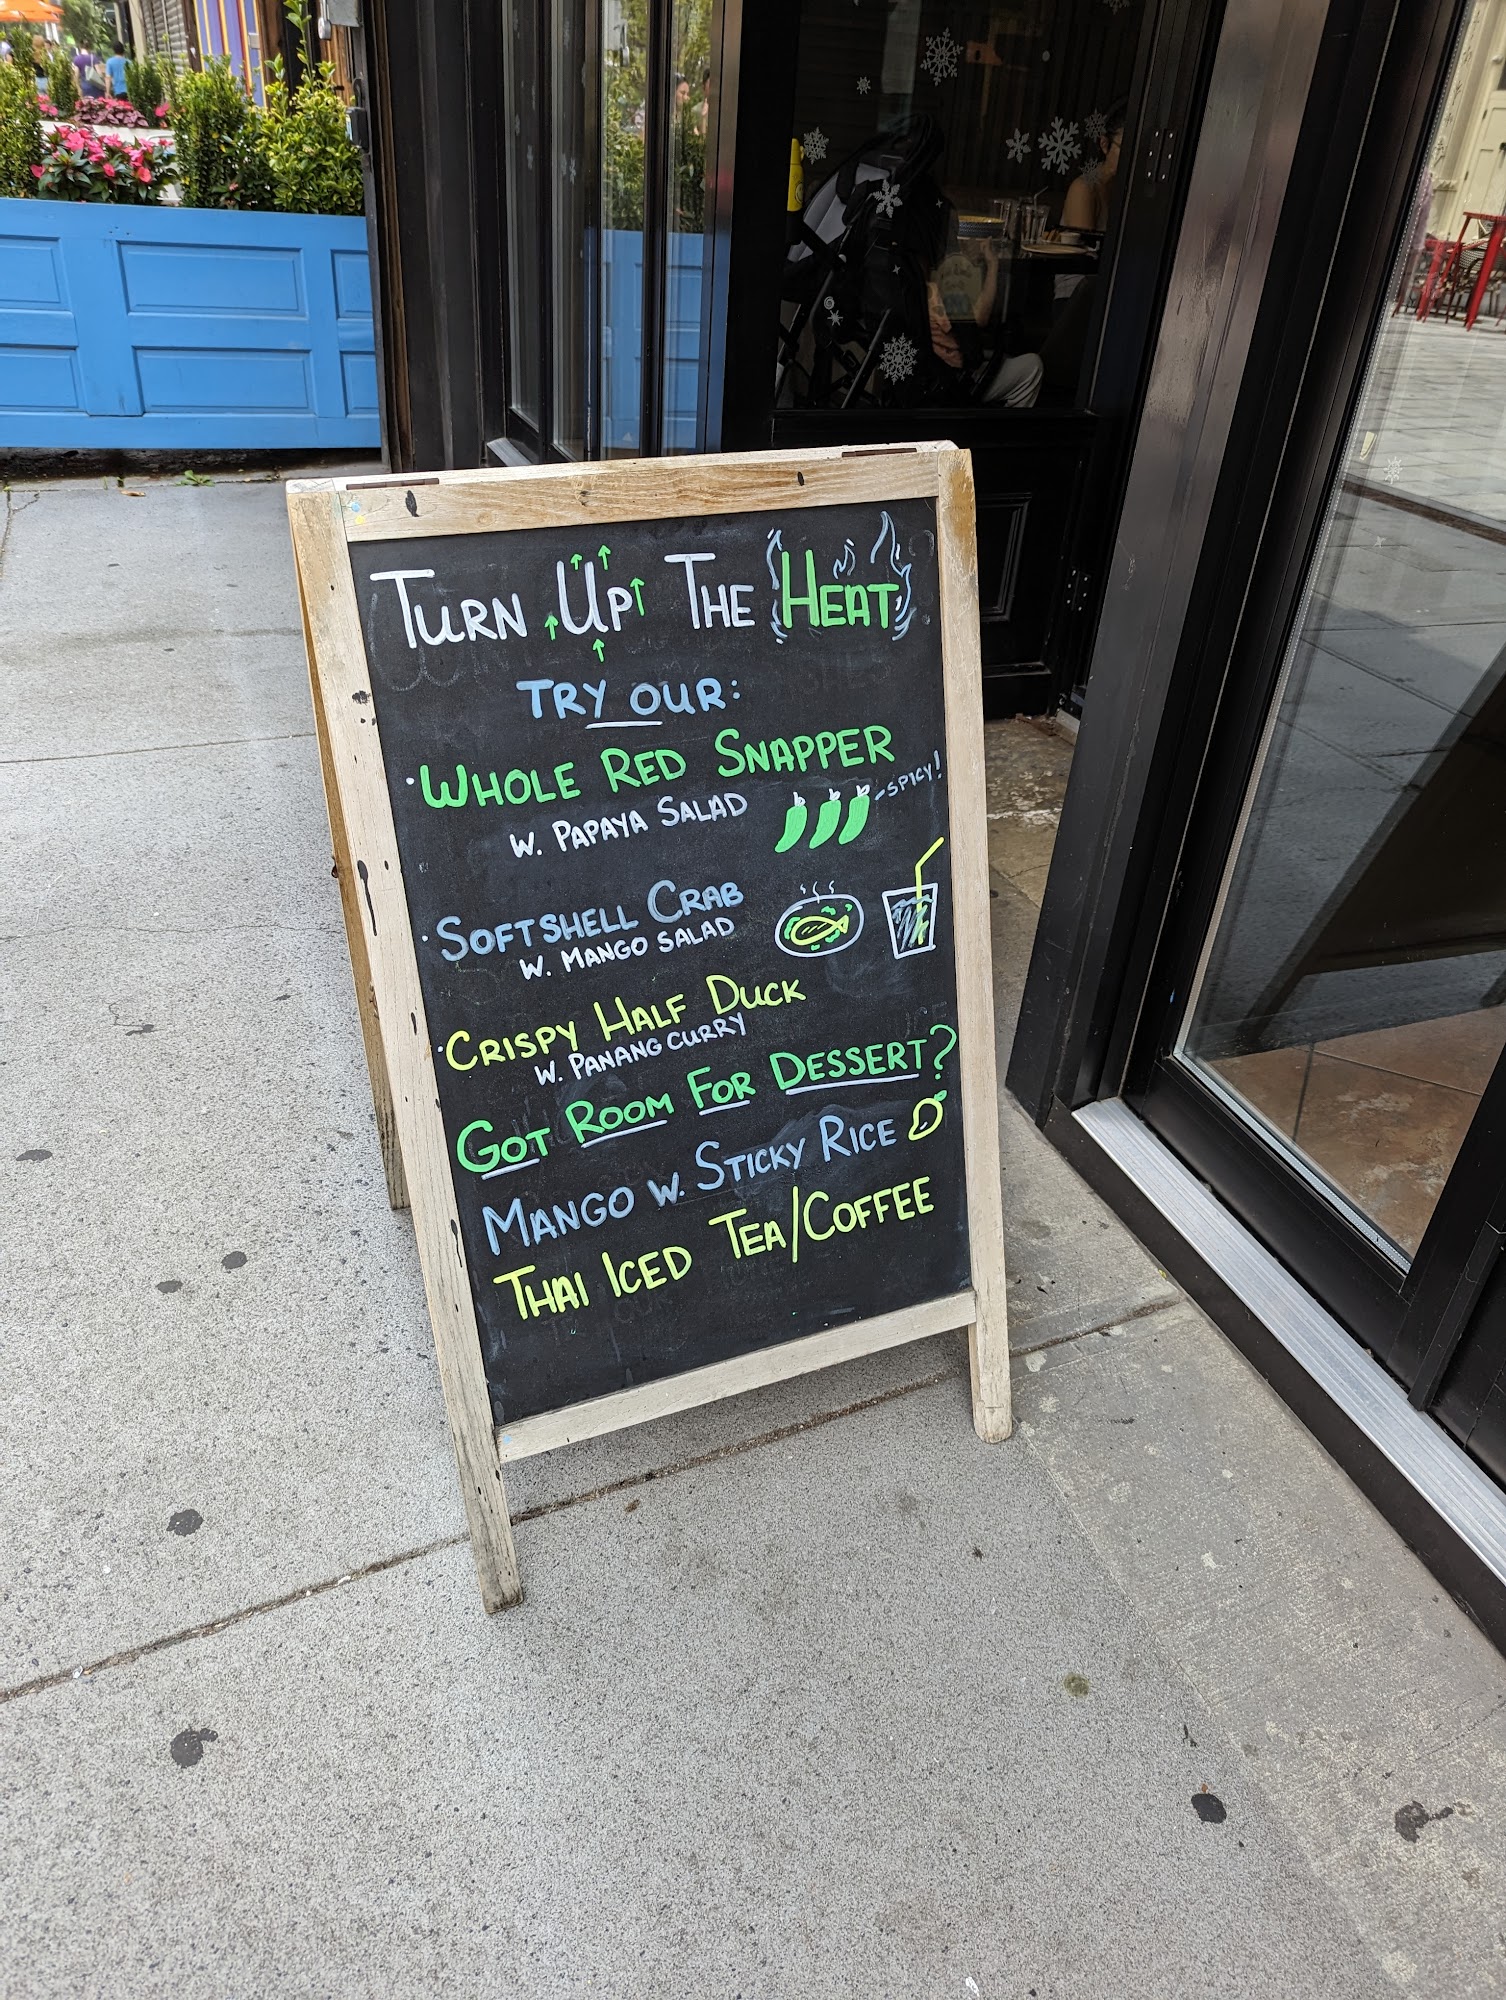 TURN UP THE HEAT
TRY OUR:
· WHOLE RED SNAPPER
W. PAPAYA SALAD
- SPICY!
· SOFTSHELL CRAB
W. MANGO SALAD
· CRISPY HALF DUCK
W. PANANG CURRY
GOT ROOM FOR DESSERT?
MANGO W. STICKY RICE
THAI ICED TEA/COFFEE